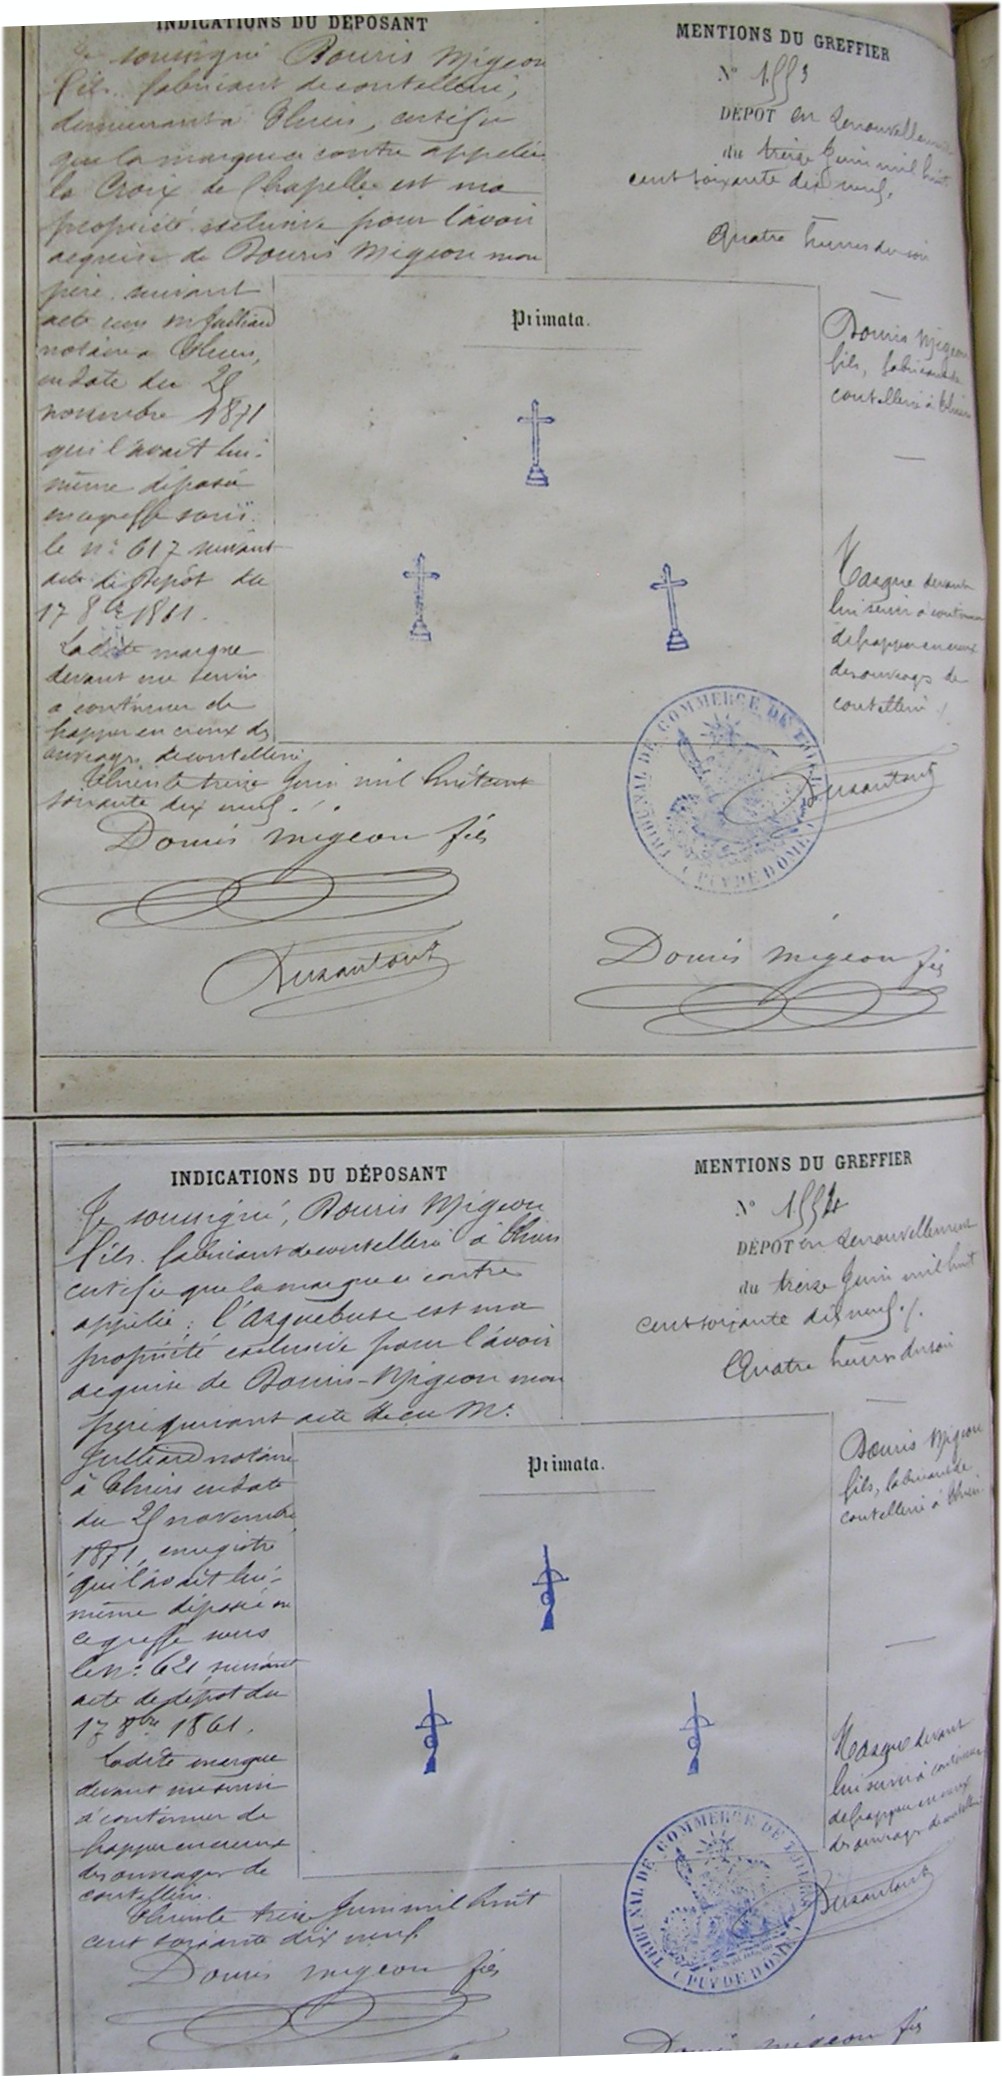 INDICATIONS DU DÉPOSANT
Je soussigné Douris Migeon
fils fabricant de coutellerie,
demeurant à Thiers, certifie
que la marque ci contre appelée
la Croix de Chapelle est ma
propriété exclusive pour l'avoir
acquise de Douris Migeon mon
père suivant
acte reçu Me Guilliard
notaire à Thiers,
en date du 25
novembre 1871
qui l'avait lui-
même déposée
au greffe sous
le No 617 suivant
acte de Dépôt du
17 8bre 1861.
Ladite marque
devant me servir
à continuer de
frapper en creux des
ouvrages de coutellerie
Thiers le treize Juin mil huit cent
soixante dix neuf.
Douris migeon fils
Dusautout
MENTIONS DU GREFFIER
No 1553
DÉPÔT en Renouvellement
du treize Juin mil huit
cent soixante dix neuf.
Quatre heures du soir
Primata.
Douris Migeon
fils, fabricant de
coutellerie à Thiers
Marque devant
lui servir à continuer
de frapper en creux
des ouvrages de
coutellerie
TRIBUNAL DE COMMERCE DE THIERS
(PUY DE DÔME)
Dusautout
Douris migeon fils
INDICATIONS DU DÉPOSANT
Je soussigné, Douris Migeon
fils fabricant de coutellerie à Thiers
certifie que la marque ci contre
appelée : l'Arquebuse est ma
propriété exclusive pour l'avoir
acquise de Douris-Migeon mon
père suivant acte reçu Me
Guilliard notaire
à Thiers en date
du 25 novembre
1871, enregistré
qui l'avait lui-
même déposée au
ce greffe sous
le No 621 suivant
acte de dépôt du
17 8bre 1861.
Ladite marque
devant me servir
à continuer de
frapper en creux
des ouvrages de
coutellerie.
Thiers le treize Juin mil huit
cent soixante dix neuf
Douris migeon fils
MENTIONS DU GREFFIER
No 1554
DÉPÔT en Renouvellement
du treize Juin mil huit
cent soixante dix neuf.
Quatre heures du soir
Primata.
Douris Migeon
fils, fabricant de
coutellerie à Thiers
Marque devant
lui servir à continuer
de frapper en creux
des ouvrages de coutellerie
TRIBUNAL DE COMMERCE DE THIERS
(PUY DE DÔME)
Dusautout
Douris migeon fils